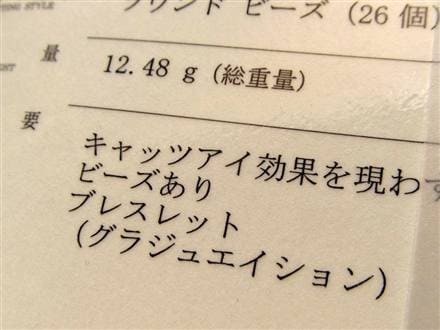 ING STYLE
ラウンド ビーズ (26 個)
量 12.48 g (総重量)
要
キャッツアイ効果を現わす
ビーズあり
ブレスレット
(グラジュエイション)